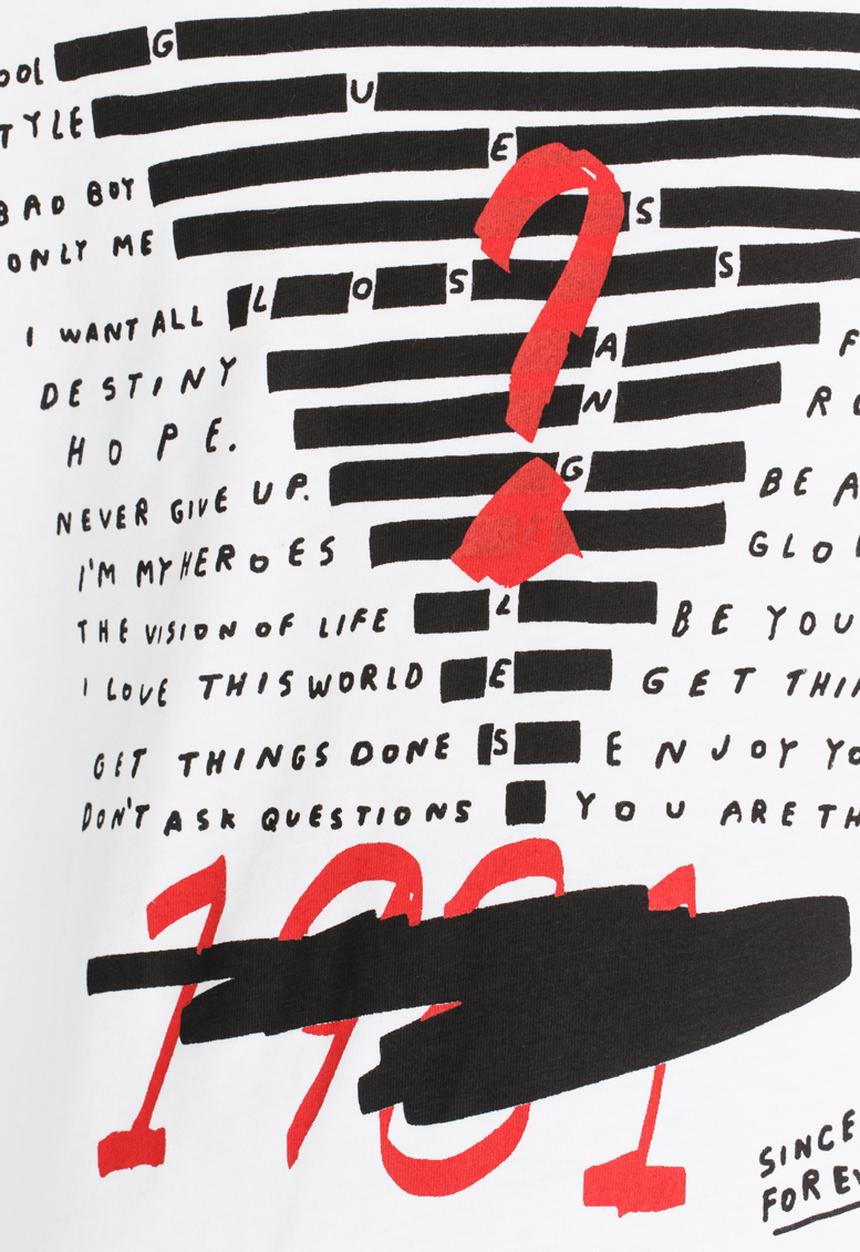 OOL G
TYLE U
BAD BOY E
ONLY ME S
I WANT ALL L O S S
DESTINY A F
HOPE. N RO
NEVER GIVE UP. G BE A
I'M MY HEROES GLO
THE VISION OF LIFE L BE YOU
I LOVE THIS WORLD E GET THI
GET THINGS DONE S ENJOY YO
DON'T ASK QUESTIONS YOU ARE TH
?
1981
SINCE
FOR EV